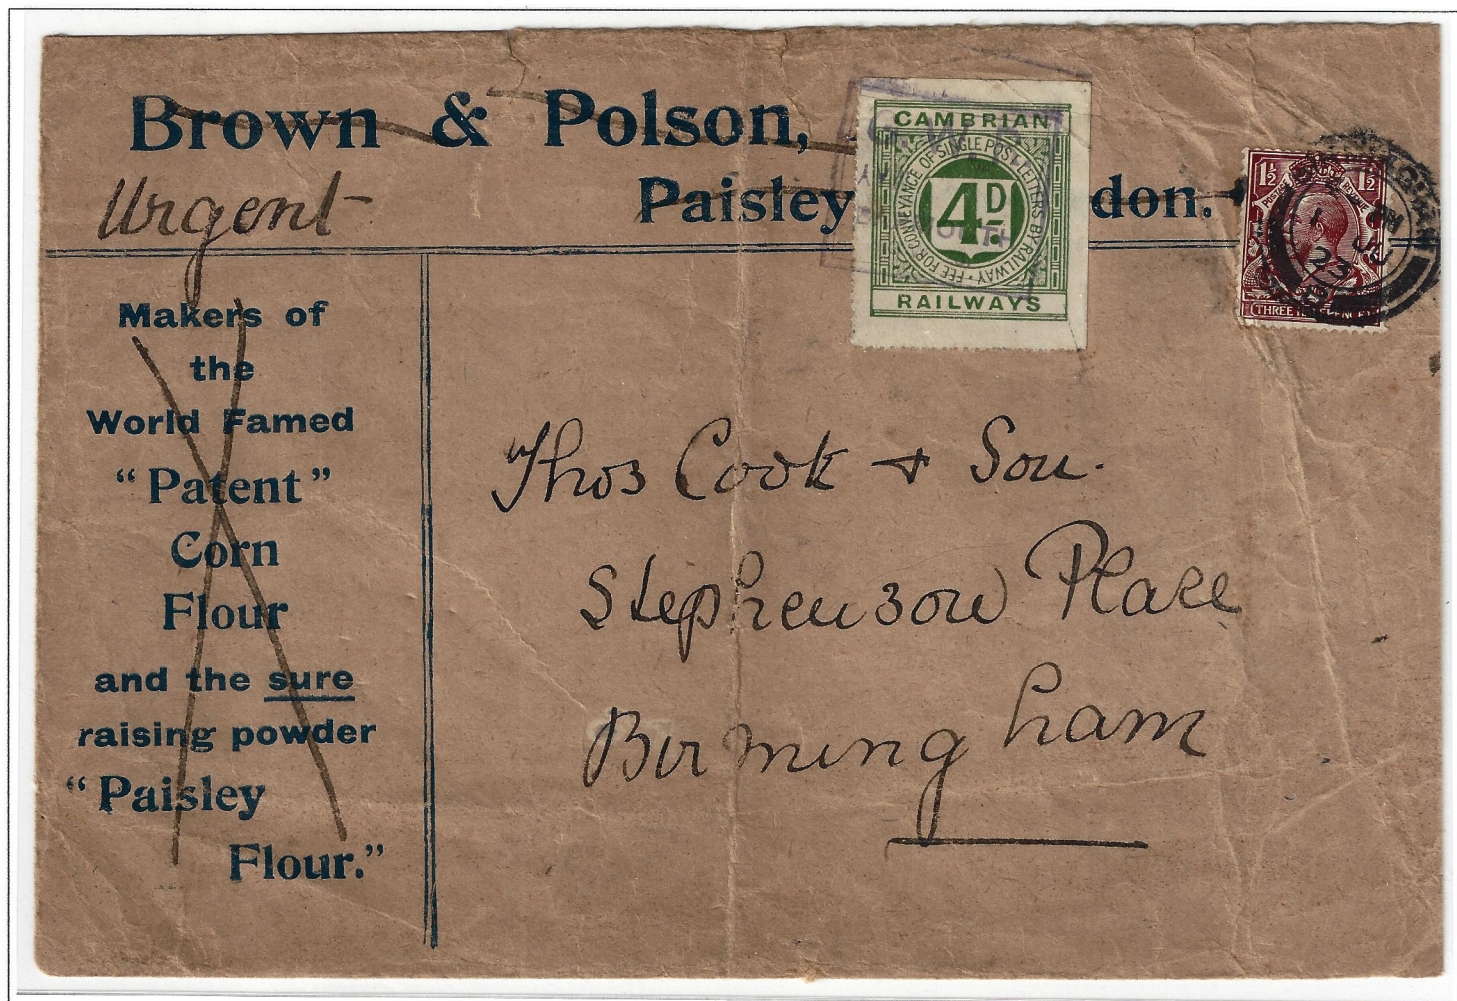 Brown & Polson,
Urgent
Paisley don.
CAMBRIAN
FEE FOR CONVEYANCE OF SINGLE POST LETTERS BY RAILWAY
4D.
RAILWAYS
1½ 1½
POSTAGE REVENUE
THREE HALFPENCE
1 JU
23
Makers of
the
World Famed
"Patent"
Corn
Flour
and the sure
raising powder
"Paisley
Flour."
Thos Cook + Son.
Stephenson Place
Birmingham